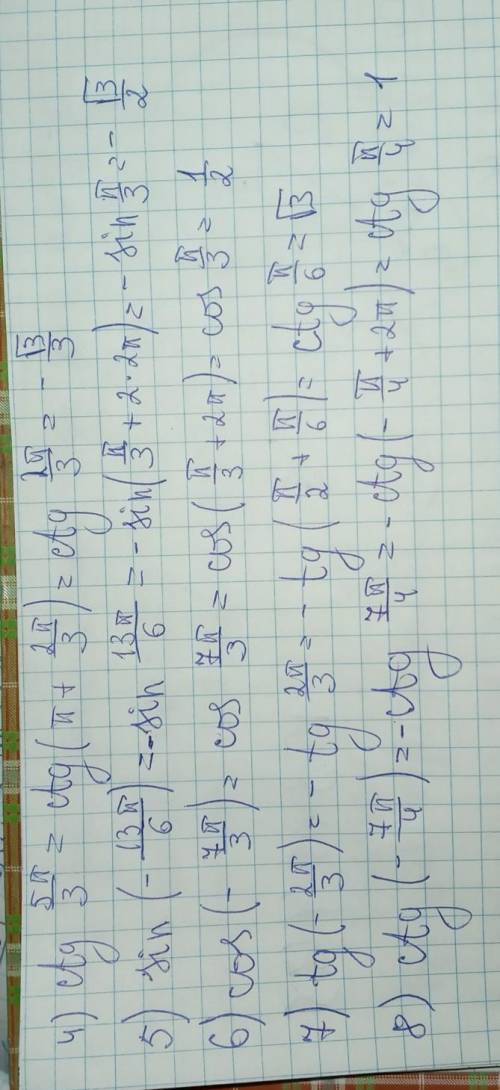 4) ctg 5π/3 = ctg(π + 2π/3) = ctg 2π/3 = - √3/3
5) sin (- 13π/6) = -sin 13π/6 = -sin(π/3 + 2·2π) = - sin π/3 = - √3/2
6) cos(- 7π/3) = cos 7π/3 = cos(π/3 + 2π) = cos π/3 = 1/2
7) tg(- 2π/3) = - tg 2π/3 = - tg(π/2 + π/6) = ctg π/6 = √3
8) ctg (- 7π/4) = -ctg 7π/4 = - ctg(- π/4 + 2π) = ctg π/4 = 1